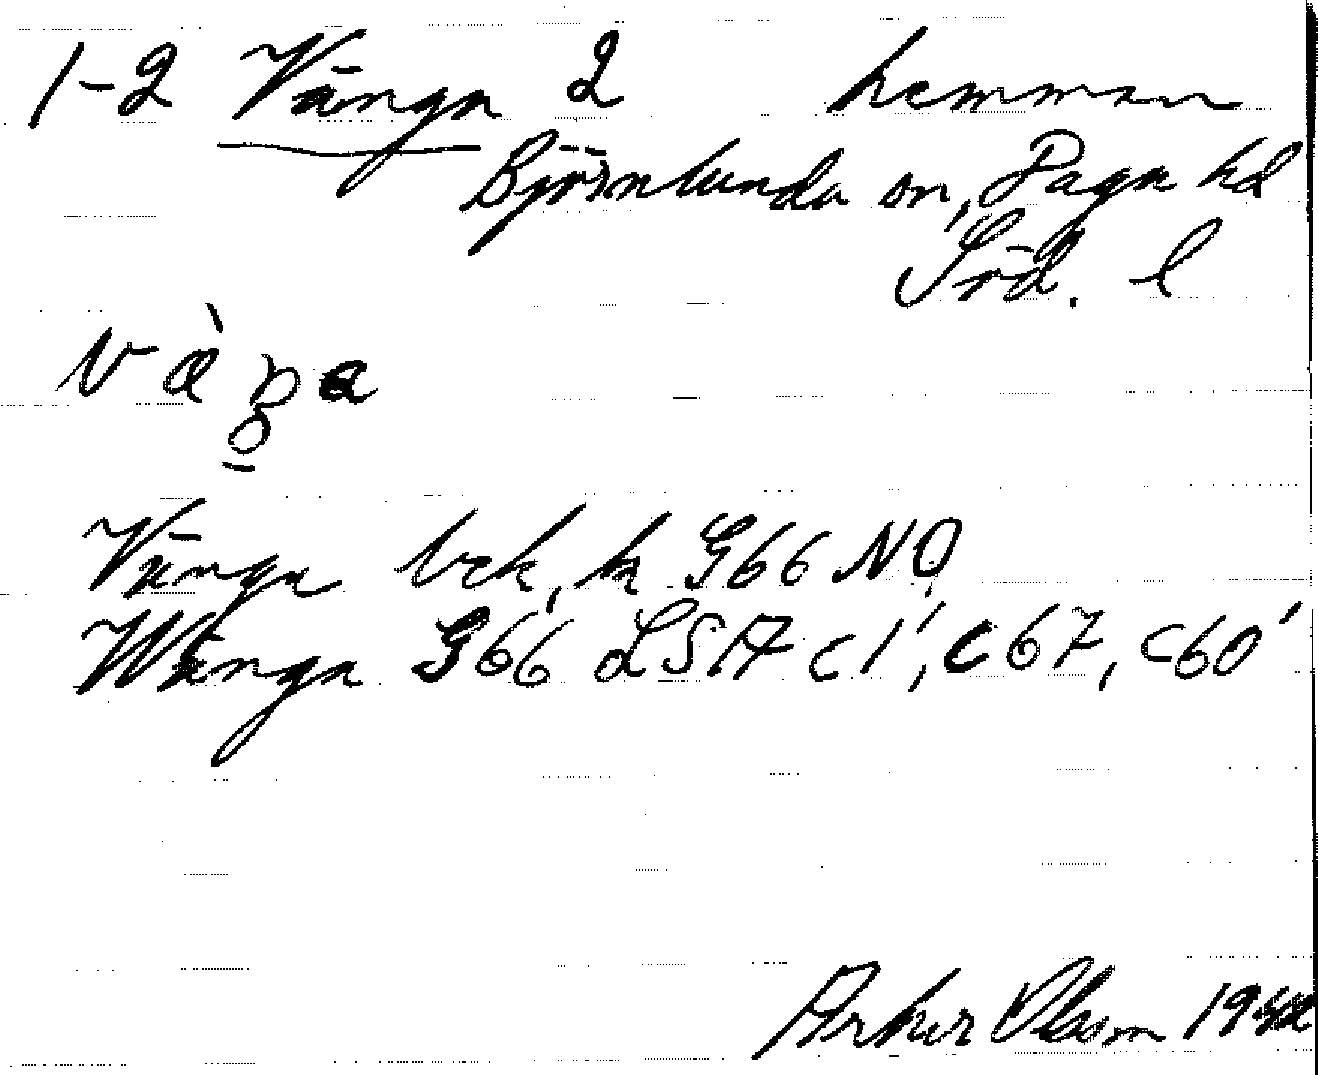 1-2 Vänga 2 hemman
Björnlunda sn, Daga hd
Söd. l
Vänga bck, k G66 NO,
Wänga G66 LSA c1', c67, c60'
Arthur Olsson